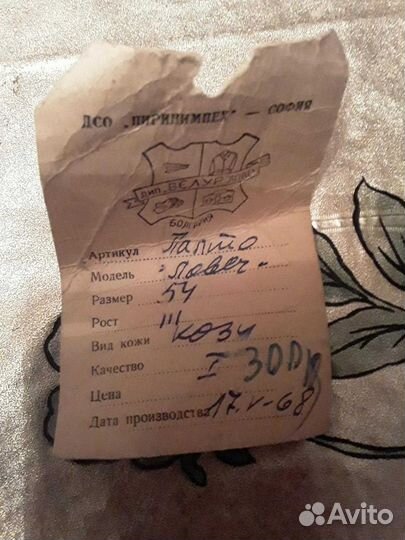 ДСО „ПИРИНИМПЕХ" — СОФИЯ
ДИП „ВЕЛУР"
БОЛГАРИЯ
Артикул Палто
Модель "Ловеч"
Размер 54
Рост III
Вид кожи козы
Качество I 300р
Цена
Дата производства 17.V-68
Avito